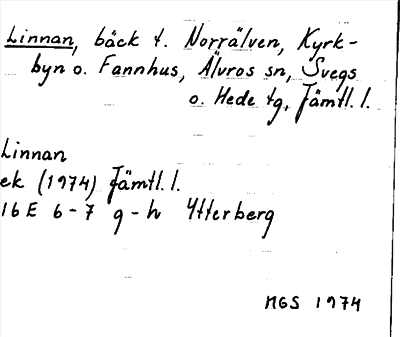 Linnan, bäck t. Norrälven, Kyrk-
byn o. Fannhus, Älvros sn, Svegs
o. Hede tg, Jämtl. l.
Linnan
ek (1974) Jämtl. l.
16 E 6-7 g-h Ytterberg
MGS 1974